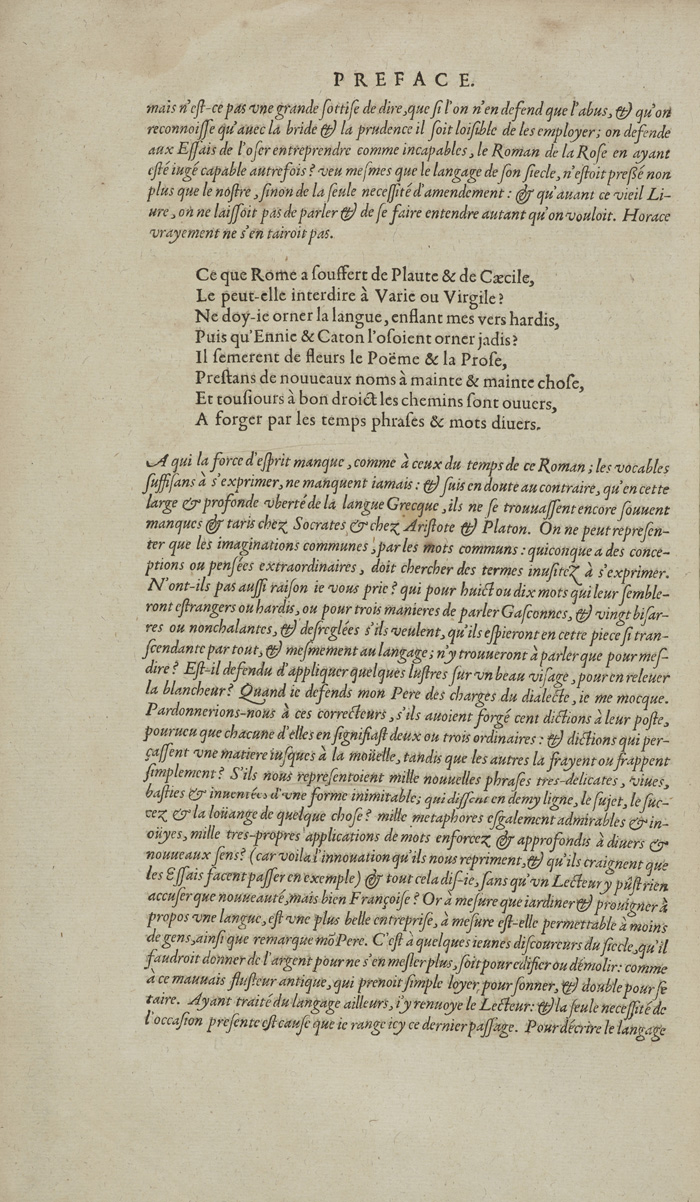 PREFACE.
mais n'eſt-ce pas vne grande ſottiſe de dire, que ſi l'on n'en defend que l'abus, & qu'on
reconnoiſſe qu'auec la bride & la prudence il ſoit loiſible de les employer; on defende
aux Eſſais de l'oſer entreprendre comme incapables, le Roman de la Roſe en ayant
eſté iugé capable autrefois? veu meſmes que le langage de ſon ſiecle, n'eſtoit preßé non
plus que le noſtre, ſinon de la ſeule neceſſité d'amendement: & qu'auant ce vieil Li-
ure, on ne laiſſoit pas de parler & de ſe faire entendre autant qu'on vouloit. Horace
vrayement ne s'en tairoit pas.
Ce que Rome a ſouffert de Plaute & de Cæcile,
Le peut-elle interdire à Varie ou Virgile?
Ne doy-ie orner la langue, enflant mes vers hardis,
Puis qu'Ennie & Caton l'oſoient orner jadis?
Il ſemerent de fleurs le Poëme & la Proſe,
Preſtans de nouueaux noms à mainte & mainte choſe,
Et touſiours à bon droict les chemins ſont ouuers,
A forger par les temps phraſes & mots diuers.
A qui la force d'eſprit manque, comme à ceux du temps de ce Roman; les vocables
ſuffiſans à s'exprimer, ne manquent iamais: & ſuis en doute au contraire, qu'en cette
large & profonde vberté de la langue Grecque, ils ne ſe trouuaſſent encore ſouuent
manques & taris chez Socrates & chez Ariſtote & Platon. On ne peut repreſen-
ter que les imaginations communes, par les mots communs: quiconque a des conce-
ptions ou penſées extraordinaires, doit chercher des termes inuſitez à s'exprimer.
N'ont-ils pas auſſi raiſon ie vous prie? qui pour huict ou dix mots qui leur ſemble-
ront eſtrangers ou hardis, ou pour trois manieres de parler Gaſconnes, & vingt biſar-
res ou nonchalantes, & deſreglées s'ils veulent, qu'ils eſpieront en cette piece ſi tran-
ſcendante par tout, & meſmement au langage; n'y trouueront à parler que pour meſ-
dire? Eſt-il defendu d'appliquer quelques luſtres ſur vn beau viſage, pour en releuer
la blancheur? Quand ie defends mon Pere des charges du dialecte, ie me mocque.
Pardonnerions-nous à ces correcteurs, s'ils auoient forgé cent dictions à leur poſte,
pourucu que chacune d'elles en ſignifiaſt deux ou trois ordinaires: & dictions qui per-
çaſſent vne matiere iuſques à la moüelle, tandis que les autres la frayent ou frappent
ſimplement? S'ils nous repreſentoient mille nouuelles phraſes tres-delicates, viues,
baſties & inuentées d'vne forme inimitable; qui diſſent en demy ligne, le ſujet, le ſuc-
cez & la loüange de quelque choſe? mille metaphores eſgalement admirables & in-
oüyes, mille tres-propres applications de mots enforcez & approfondis à diuers &
nouueaux ſens? (car voila l'innouation qu'ils nous repriment, & qu'ils craignent que
les Eſſais facent paſſer en exemple) & tout cela diſ-ie, ſans qu'vn Lecteur y pûſt rien
accuſer que nouueauté, mais bien Françoiſe? Or à meſure que iardiner & prouigner à
propos vne langue, eſt vne plus belle entrepriſe, à meſure eſt-elle permettable à moins
de gens, ainſi que remarque mõ Pere. C'eſt à quelques ieunes diſcoureurs du ſiecle, qu'il
faudroit donner de l'argent pour ne s'en meſler plus, ſoit pour edifier ou démolir: comme
à ce mauuais fluſteur antique, qui prenoit ſimple loyer pour ſonner, & double pour ſe
taire. Ayant traité du langage ailleurs, i'y renuoye le Lecteur: & la ſeule neceſſité de
l'occaſion preſente eſt cauſe que ie range icy ce dernier paſſage. Pour décrire le langage